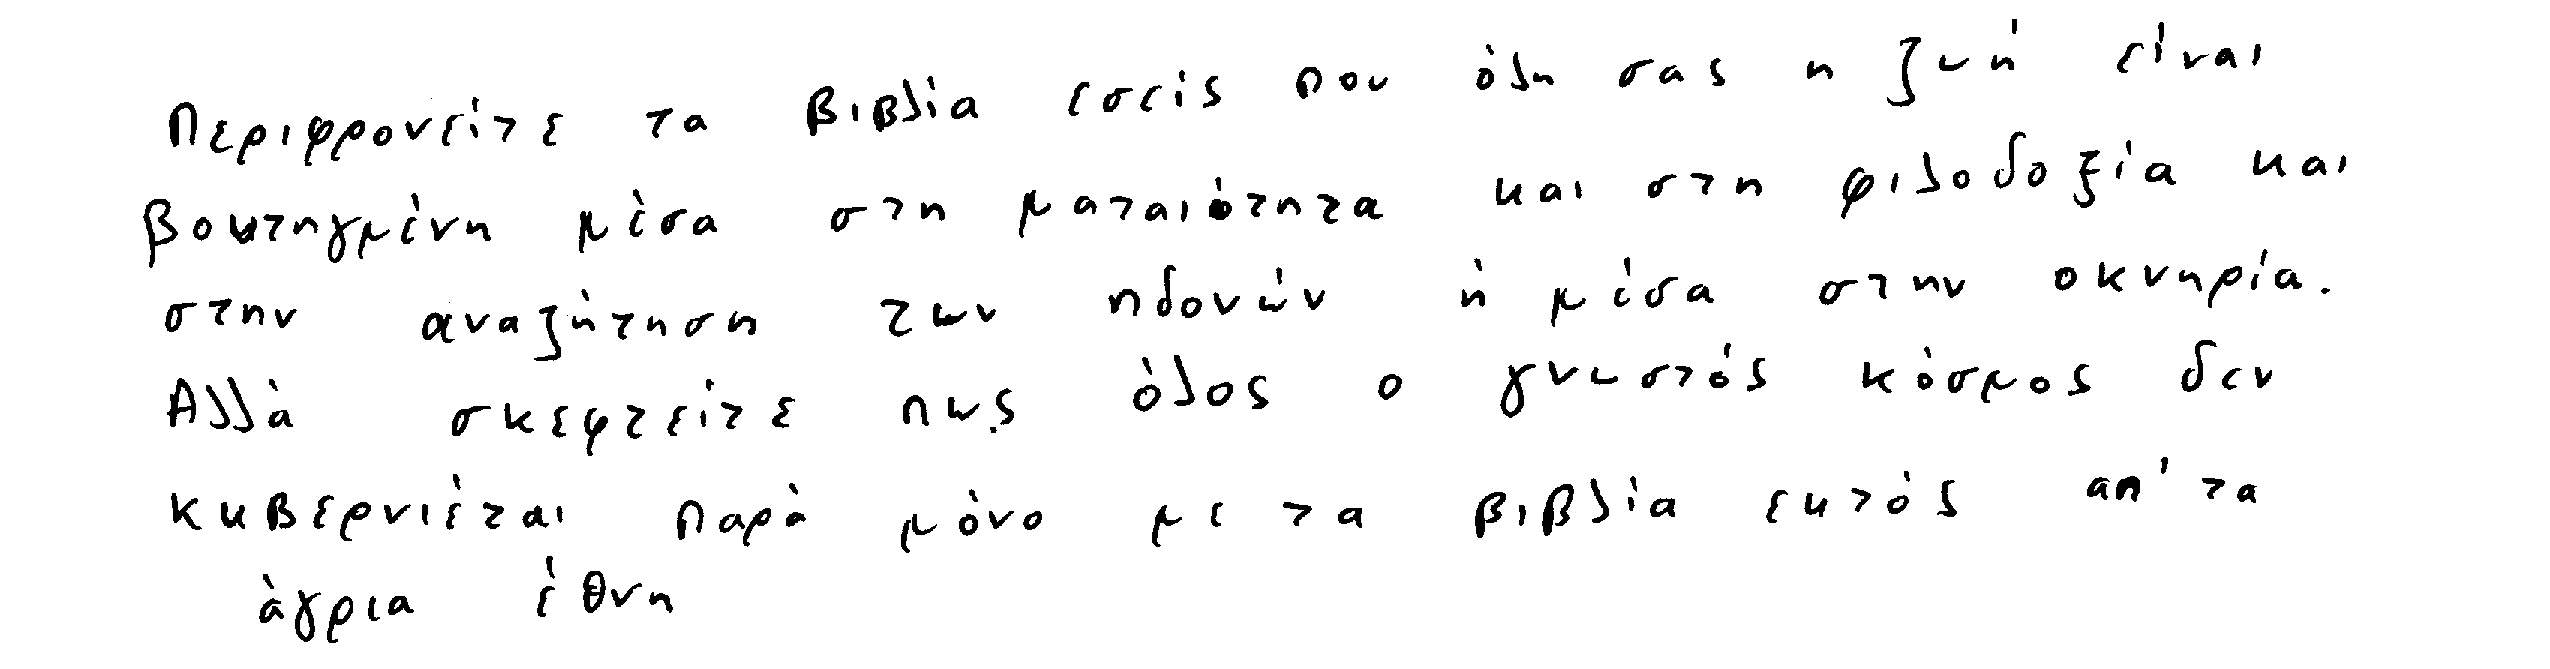 Περιφρονείτε τα βιβλία εσείς που όλη σας η ζωή είναι
βουτηγμένη μέσα στη ματαιότητα και στη φιλοδοξία και
στην αναζήτηση των ηδονών ή μέσα στην οκνηρία.
Αλλά σκεφτείτε πως όλος ο γνωστός κόσμος δεν
κυβερνιέται παρά μόνο με τα βιβλία εκτός απ' τα
άγρια έθνη